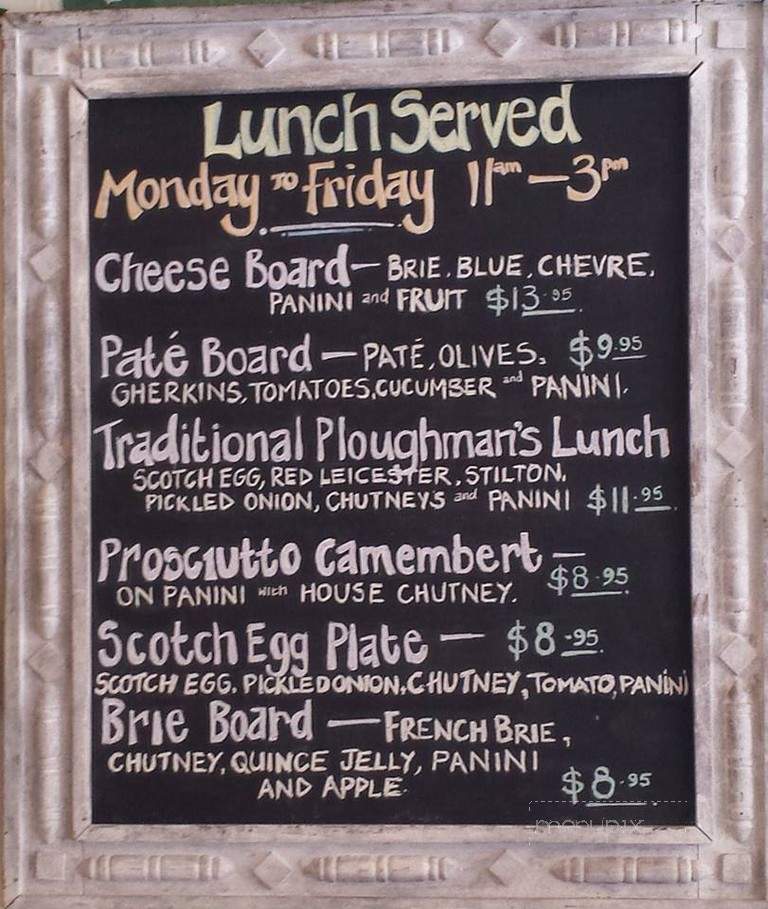 Lunch Served
Monday TO Friday 11am - 3pm
Cheese Board - BRIE, BLUE, CHEVRE,
PANINI and FRUIT $13.95
Paté Board - PATÉ, OLIVES, $9.95
GHERKINS, TOMATOES, CUCUMBER and PANINI.
Traditional Ploughman's Lunch
SCOTCH EGG, RED LEICESTER, STILTON,
PICKLED ONION, CHUTNEYS and PANINI $11.95
Prosciutto Camembert -
ON PANINI with HOUSE CHUTNEY. $8.95
Scotch Egg Plate - $8.95
SCOTCH EGG, PICKLED ONION, CHUTNEY, TOMATO, PANINI
Brie Board - FRENCH BRIE,
CHUTNEY, QUINCE JELLY, PANINI
AND APPLE. $8.95
menupix